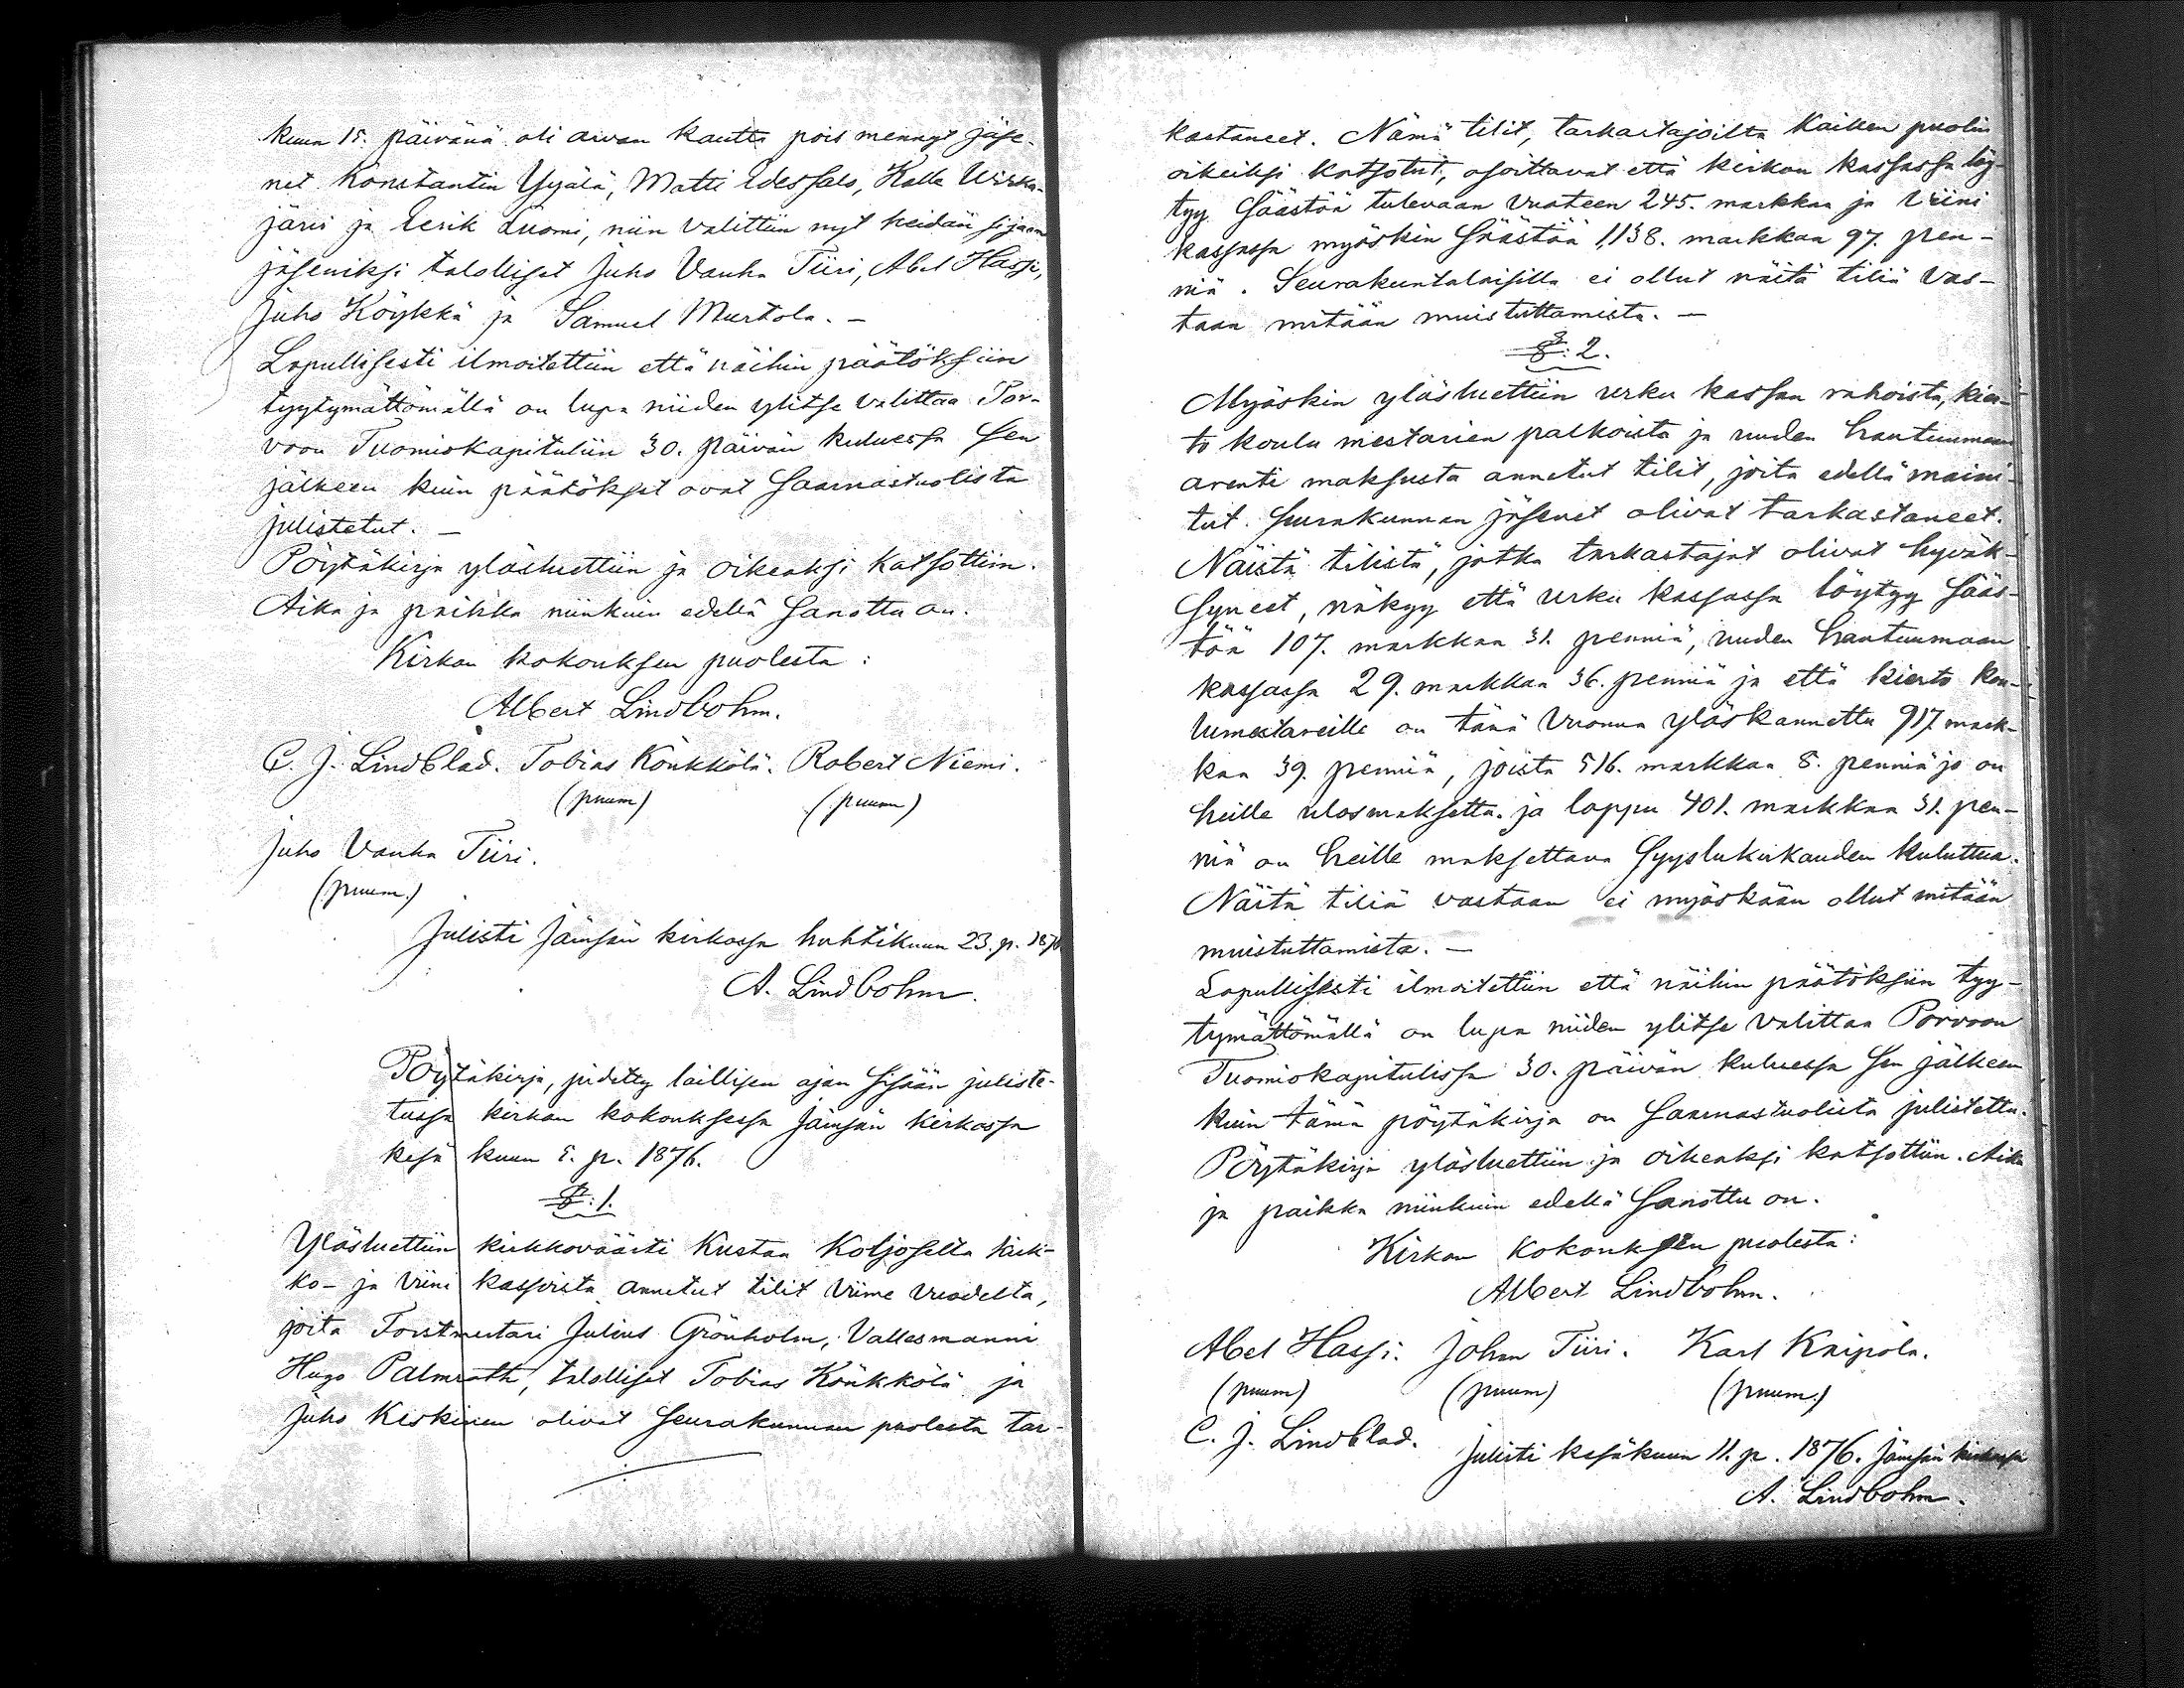 kuun 15. päivänä oli aivan kautta pois mennyt jäse-
net Konstantin Yijälä, Matti Edessalo, Kalle Wirka-
järvi ja Eerik Luomi, niin valittiin nyt heidän sijaan
jäseniksi talolliset Juho Vanha Tiiri, Abel Hassi,
Juho Köykkä ja Samuel Murtola. —
Lopullisesti ilmoitettiin että näihin päätöksiin
tyytymättömällä on lupa niiden ylitse valittaa Por-
voon Tuomiokapituliin 30. päivän kuluessa sen
jälkeen kuin päätökset ovat saarnastuolista
julistetut. —
Pöytäkirja yläsluettiin ja oikeaksi katsottiin.
Aika ja paikka niinkuin edellä sanottu on.
Kirkon kokouksen puolesta:
Albert Lindbohm.
C. J. Lindblad. Tobias Könkkölä. Robert Niemi.
(puum) (puum)
Juho Vanha Tiiri.
(puum.)
Julisti Jämsän kirkossa huhtikuun 23. p. 1876
A. Lindbohm.
Pöytäkirja, pidetty laillisen ajan sisään juliste-
tussa kirkon kokouksessa Jämsän kirkossa
kesä kuun 5. p. 1876.
§: 1.
Yläsluettiin kirkkoväärti Kustaa Koljoselta kirk-
ko- ja viini kassoista annetut tilit viime vuodelta,
joita Forstmestari Julius Grönholm, Vallesmanni
Hugo Palmroth, talolliset Tobias Könkkölä ja
Juho Keskinen olivat seurakunnan puolesta tar-
kastaneet. Nämä tilit, tarkastajoilta kaiken puolin
oikeiksi katsotut, osoittavat että kirkon kassassa löy-
tyy säästöä tulevaan vuoteen 245. markkaa ja viini
kassassa myöskin säästöä 1,138. markkaa 97. pen-
niä. Seurakuntalaisilla ei ollut näitä tiliä vas-
taan mitään muistuttamista. —
§: 2.
Myöskin yläsluettiin urku kassan rahoista, kier-
to koulu mestarien palkoista ja uuden hautuumaan
arenti maksusta annetut tilit, joita edellä maini-
tut seurakunnan jäsenet olivat tarkastaneet.
Näistä tilistä, jotka tarkastajat olivat hyväk-
syneet, näkyy että urku kassassa löytyy sääs-
töä 107. markkaa 31. penniä, uuden hautuumaan
kassassa 29. markkaa 36. penniä ja että kierto kou-
lumestareille on tänä vuonna yläskannettu 917 mark-
kaa 39. penniä, joista 516. markkaa 8. penniä jo on
heille ulosmaksettu ja loppu 401. markkaa 31. pen-
niä on heille maksettava syyslukukauden kuluttua.
Näitä tiliä vastaan ei myöskään ollut mitään
muistuttamista. —
Lopullisesti ilmoitettiin että näihin päätöksiin tyy-
tymättömällä on lupa niiden ylitse valittaa Porvoon
Tuomiokapitulissa 30. päivän kuluessa sen jälkeen
kuin tämä pöytäkirja on saarnastuolista julistettu.
Pöytäkirja yläsluettiin ja oikeaksi katsottiin. Aika
ja paikka niinkuin edellä sanottu on.
Kirkon kokouksen puolesta:
Albert Lindbohm.
Abel Hassi. Johan Tiiri. Karl Kaipola.
(puum) (puum) (puum.)
C. J. Lindblad.
Julisti kesäkuun 11. p. 1876. Jämsän kirkossa
A. Lindbohm.